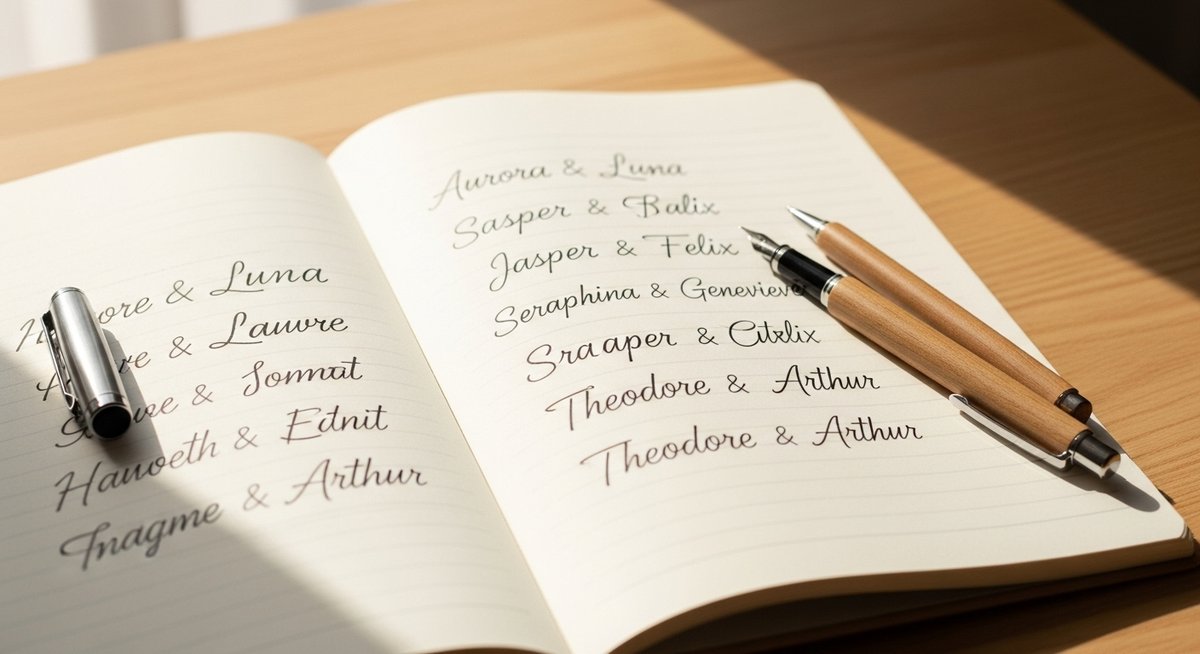 & Luna
& Lauwre
& Sommat
Hauvoeth & Ednit
Fnagme & Arthur
Aurora & Luna
Sasper & Balix
Jasper & Felix
Seraphina & Genevieve
Sraaper & Citxlix
Theodore & Arthur
Theodore & Arthur